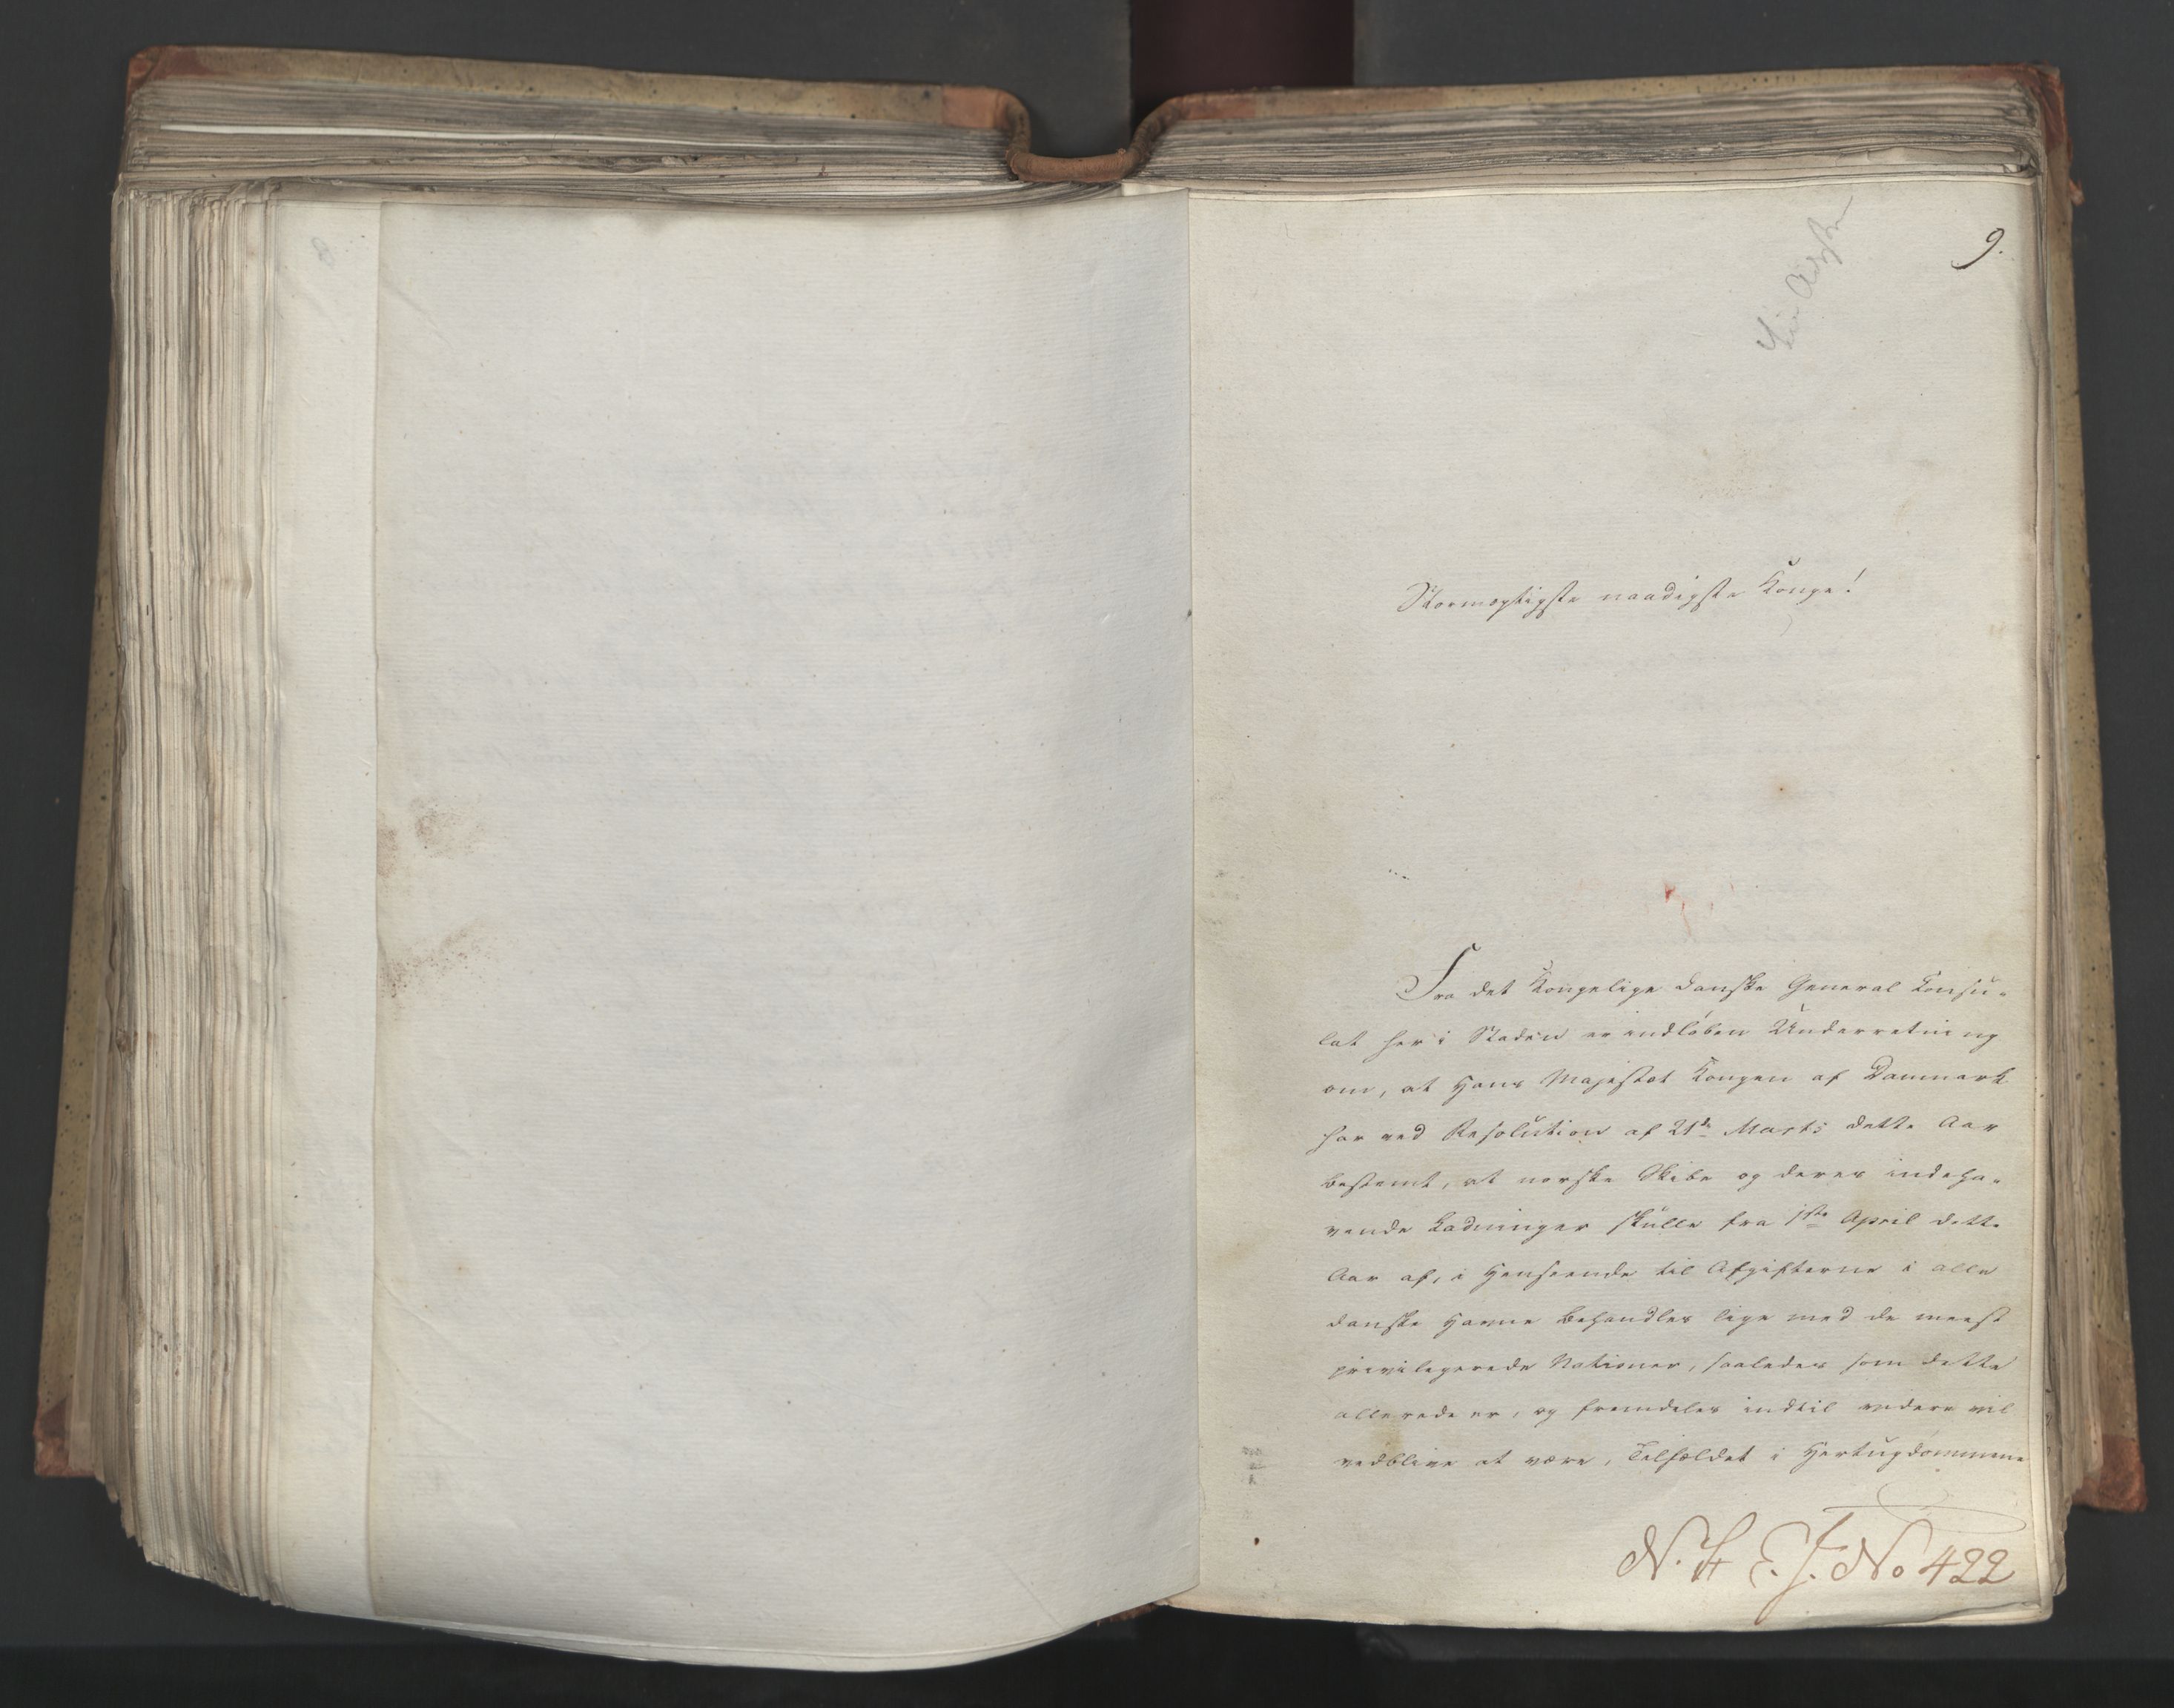 9.
Stormægtigste naadigste Konge!
Fra det Kongelige danske General Konsu-
lat her i Staden er indløben Underretning
om, at Hans Majestæt Kongen af Danmark
har ved Resolution af 21de Marts dette Aar
bestemt, at norske Skibe og deres indeha-
vende Ladninger skulle fra 1ste April dette
Aar af, i Henseende til Afgifterne i alle
danske Havne behandles lige med de meest
privilegerede Nationer, saaledes som dette
allerede er, og fremdeles indtil videre vil
vedblive at være, Tilfældet i Hertugdømmene
No 422